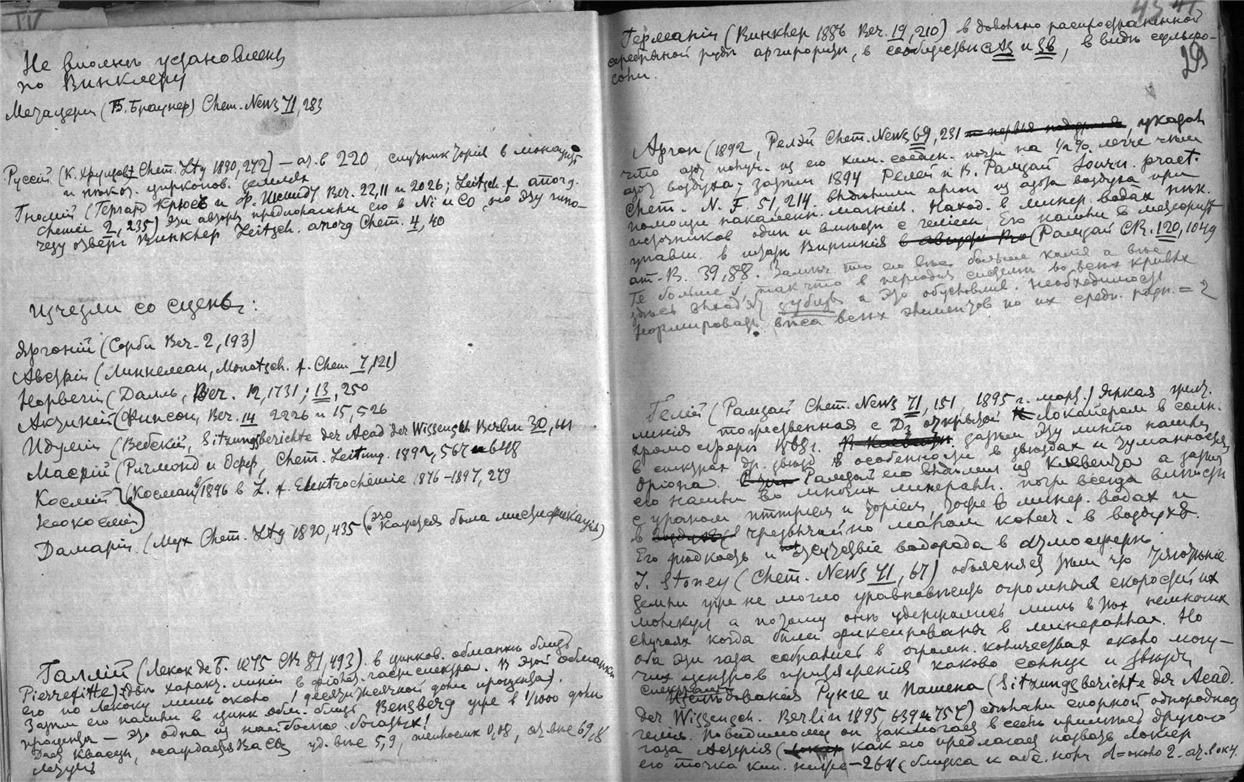 IV
Не вполнѣ установлены
по Винклеру
Мечацери (Б. Браунер) Chem. News 71, 283
Руссий (К. Хрущов Chem. Ztg 1890, 272) — ат. в 220 спутник торія в монаците
и цирконов. землях
Гномий (Гергард Крюсс и Ф. Шмидт Ber. 22, 11 и 2026; Zeitsch. f. anorg.
chemie 2, 235) эти авторы предполагали его в Ni и Co, но эту гипо-
тезу отверг Винклер Zeitsch. anorg Chem. 4, 40
Изчезли со сцены:
Яргоній (Сорби Ber. 2, 193)
Австрій (Линнеман, Monatsch. f. Chem 7, 121)
Норвегій (Далль, Ber. 12, 1731; 13, 250
Актиний (Фипсон, Ber. 14 2226 и 15, 526
Идуний (Вебский, Sitzungsberichte der Acad der Wissensch Berlin 30, 661
Масрий (Ричмонд и Офф, Chem. Zeitung. 1892, 567 и 648
Космий (Косман 1896 в Z. f. Elektrochemie 1896-1897, 279
Неокосмий
Дамарий. (Лух Chem. Ztg 1890, 435 (это кажется была мистификация)
Галлій (Лекок де Б. 1875 CR 81, 493). в цинков. обманкѣ близ
Pierrefitte) Двѣ характ. линіи в фіолет. части спектра. В этой обманкѣ
его по Лекоку лишь около 1 десятитысячной доли процента).
Затем его нашли в цинк обм. близ Bensberg уже в 1/1000 доли
процента — это одна из наиболее богатых!
Дает квасцы, осаждается BaCO3 уд. вѣс 5,9, теплоемк 0,08, ат. вѣс 69,8
летучъ
43 45
29
Германій (Винклер 1886 Ber. 19, 210) в довольно распространенной
серебряной рудѣ аргиродит, в сообществѣ с As и Sb, в видѣ сульфо-
соли.
Аргон (1892, Релей Chem. News 69, 231 указал
что азот получ. из его хим. соедин. почти на 1/2 % легче чѣм
азот воздуха; затем 1894 Релей и В. Рамзай Journ. pract.
Chem. N. F. 51, 214. выдѣлили аргон из азота воздуха при
помощи накаленн. магнія. Наход. в минер. водах пик.
источников один и вмѣстѣ с геліем. Его нашли в метеорит
упавш. в штатѣ Виргинія (Рамзай CR. 120, 1049
ат. В. 39,88. Замѣч что его вѣс больше калія а вѣс
Te больше J, так что в періодич системѣ во всѣх кривых
здѣсь зубцы а это обусловлив. необходимость
нормировать вѣса всѣх элементов по их средн. разн. = 2
Гелій (Рамзай Chem. News 71, 151 1895 г. март.) Яркая желт.
линія тожественная с D3 открытой Локайером в солн.
хромосферѣ 1868г. затѣм эту линію нашли
в спектрах др. звѣзд в особенности в звѣздах и туманностях
Оріона. Рамзай его выдѣлил из клевеита а затѣм
его нашли во многих минералах почти всегда вмѣстѣ
с ураном иттріем и торіем, тоже в минер. водах и
в чрезвычайно малом колич. в воздухѣ.
Его рѣдкость и отсутствіе водорода в атмосферѣ
J. Stoney (Chem. News 71, 67) объясняет тѣм что тяготѣніе
земли уже не могло уравновѣшить огромныя скорости их
молекул а потому они удержались лишь в тѣх немногих
случаях когда были фиксированы в минералах. Но
оба эти газа собрались в огромн. количествах около могу-
чих центров притяженія каково солнце и звѣзды
Спектральн.
Изслѣдованія Рунге и Пашена (Sitzungsberichte der Acad.
der Wissensch. Berlin 1895, 639 и 759) однородность
гелія. Повидимому он заключает в себѣ примѣсь другого
газа Астерія как его предлагает назвать Локіер
его точка кип. ниже −264 (близка к абс. нолю d = около 2. ат. в около